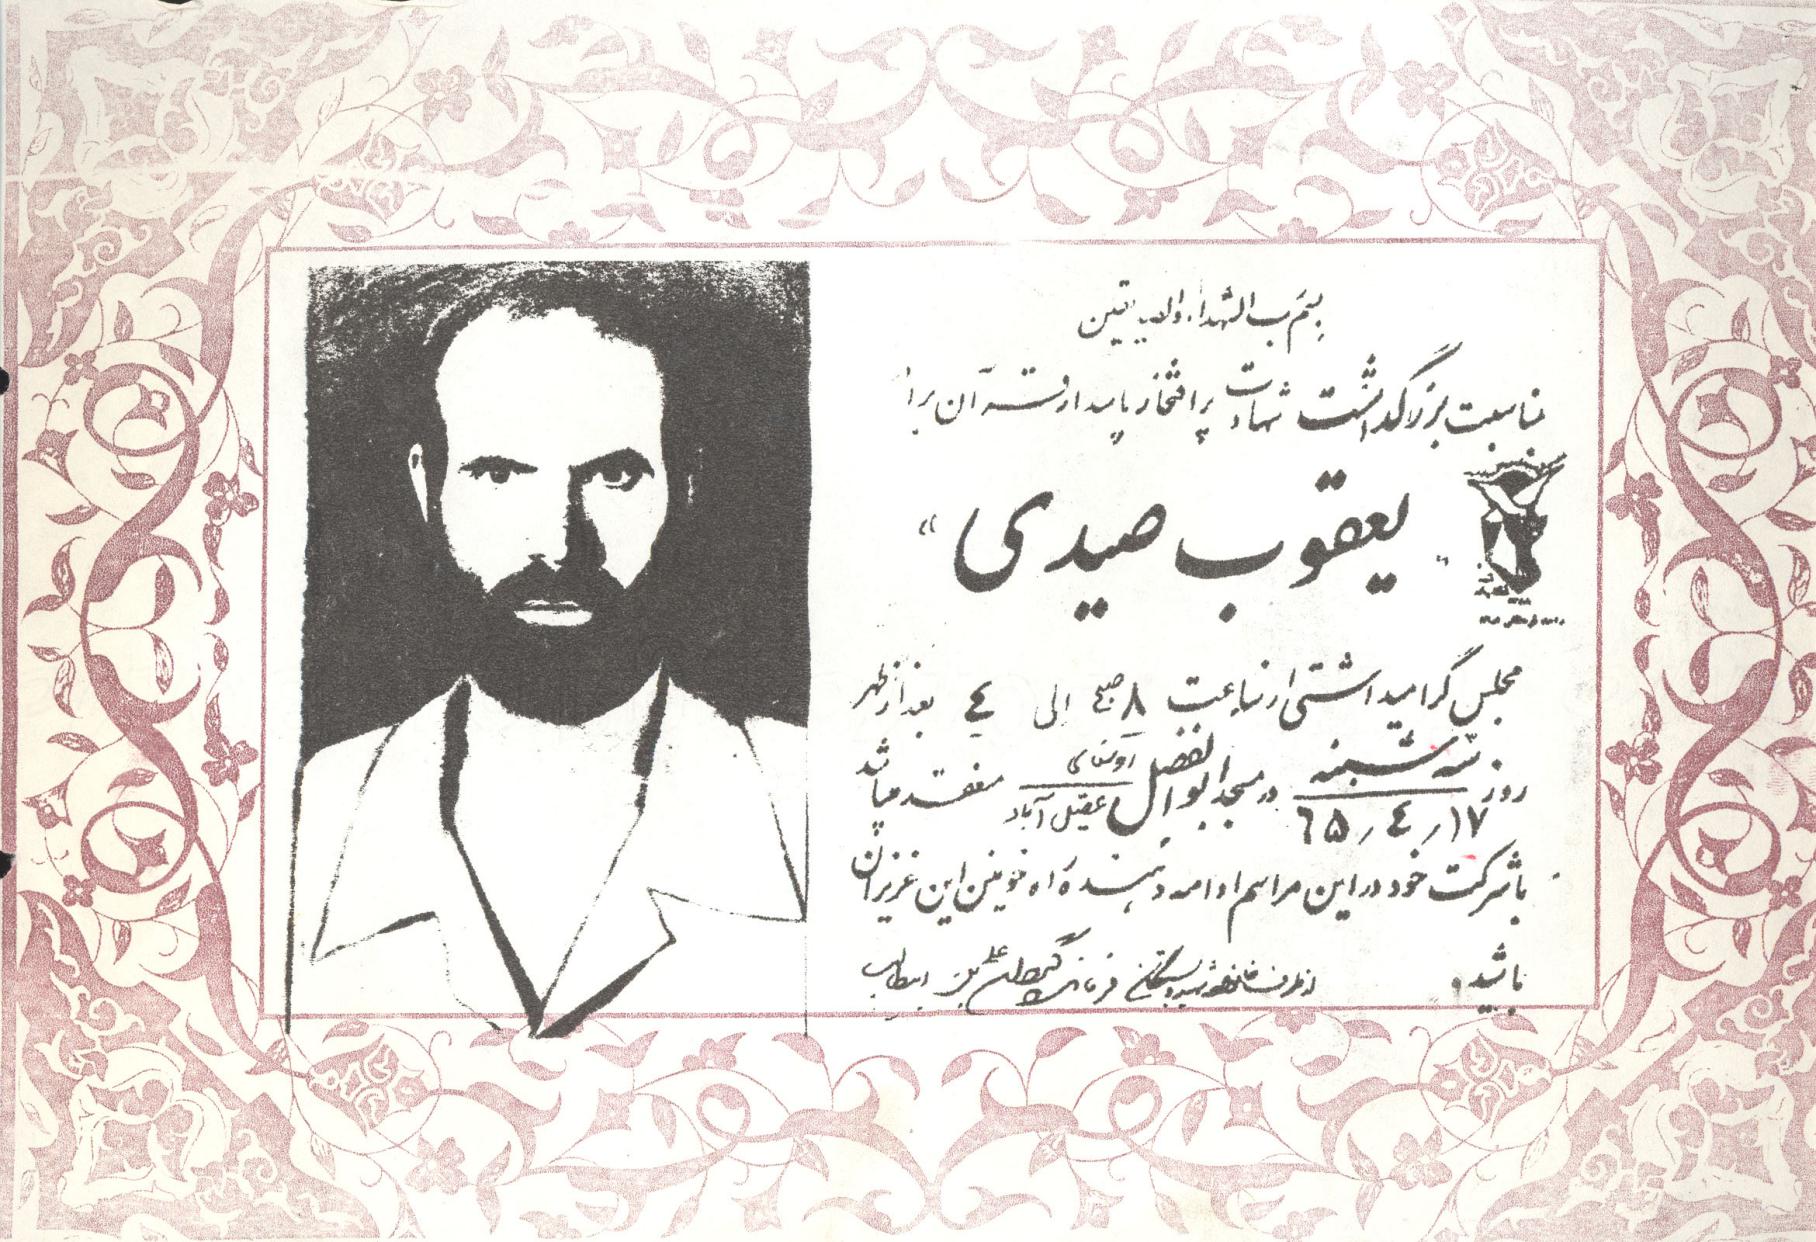 بسم رب الشهداء والصدیقین
بمناسبت بزرگداشت شهادت پرافتخار پاسدار قرآن برادر
« یعقوب صیدی »
مجلس گرامیداشتی از ساعت ۸ صبح الی ٤ بعد از ظهر
روز سه شنبه ۱۷ / ٤ / ٦۵ در مسجد ابوالفضل روستای عقیل آباد منعقد میباشد
با شرکت خود در این مراسم ادامه دهنده راه خونین این عزیزان
باشید.
از طرف خانواده شهید و بستگان فرماندهی گردان علی بن ابیطالب